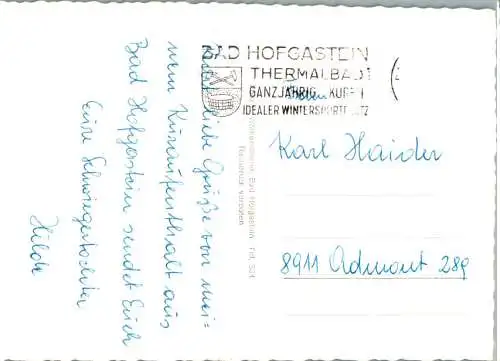 BAD HOFGASTEIN
THERMALBAD
GANZJÄHRIG KUREN
IDEALER WINTERSPORTPLATZ
liebe Grüße von mei=
nem Kuraufenthalt aus
Bad Hofgastein sendet Euch
Eure Schwiegertochter
Hilde
Bad Hofgastein Tel. 524
Nachdruck verboten
Karl Haider
8911 Admont 289